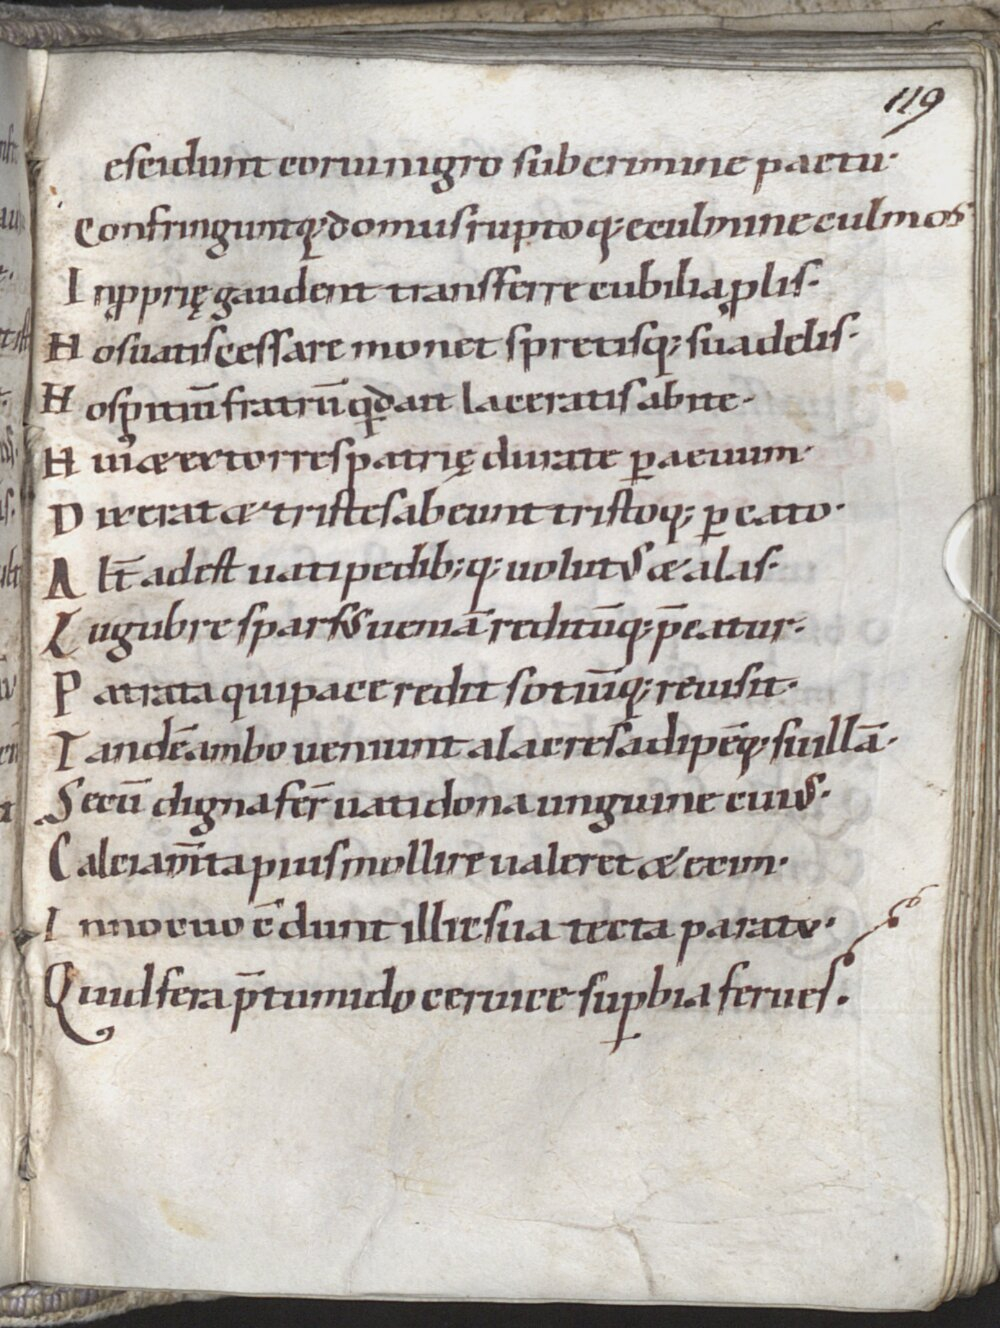 119
escidunt corui nigro sub crimine pactu·
Confringuntq; domus ruptoq; eculmine culmos
In ꝓprię gaudent transferre cubilia ꝓlis·
Hos uatis cessare monet spretisq; suadelis·
Hospitiū fratrū qd dait laceratis abite·
Huic & extorres patrię durate ꝑ aeuum·
Dixerat & tristes abeunt tristoq; ꝑ eato·
Alt̄ adest uati pedib;q; uolut᷒ & alas·
Lugubre spars᷒ ueniā reditūq; p̄catur·
Patrata qui pace redit sotiūq; reuisit·
Tandē ambo ueniunt alacres adipēq; suillā·
Secū digna fer̄ uati dona unguine cui᷒·
Calciam̄ta pius mollire ualeret & exin·
Innocuo c̄dunt illic sua tecta paratu·
Quid fera p̄tumido ceruice suꝑbia ferues.